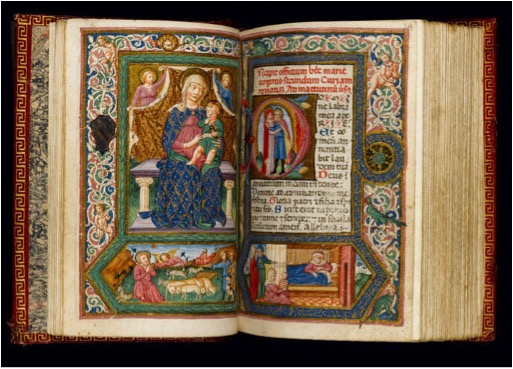 Incipit officium bte marie
virginis secundum Curiam
romana. Ad matutinu
ne labia
mea ape
R I E
Et os
meu an
nuncia
bit lau
dem tua
Deus i
adiutorium meum intende:
Domine ad adiuvandum me
Gloria patri et filio et
sco. Sicut erat in
et nunc et semper: et in secula
seculorum amen. Alleluia.